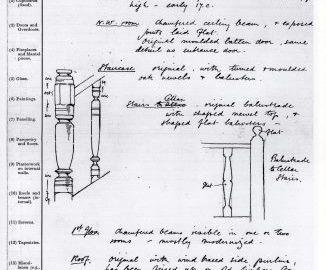 (Road).
high - early 17.c.
(3) Doors and Doorcases.
N.W. room chamfered ceiling beam, & exposed
joists laid flat.
original moulded batten door, same
detail as entrance door.
(4) Fireplaces and Mantel pieces.
Staircase original, with turned & moulded
oak newels & balusters.
(5) Glass.
(6) Paintings.
Cellar
Stairs to - original balustrade
with shaped newel top, &
shaped flat balusters -
(7) Panelling.
flat
(8) Parquetry and floors.
(9) Plasterwork on internal walls.
Balustrade
to Cellar
Stairs.
flat
(10) Roofs and beams (internal).
(11) Screens.
1st Floor. Chamfered beams visible in one or two
rooms - mostly modernized.
(12) Tapestries.
Roof. original with wind braced side purlins,
(13)
has been